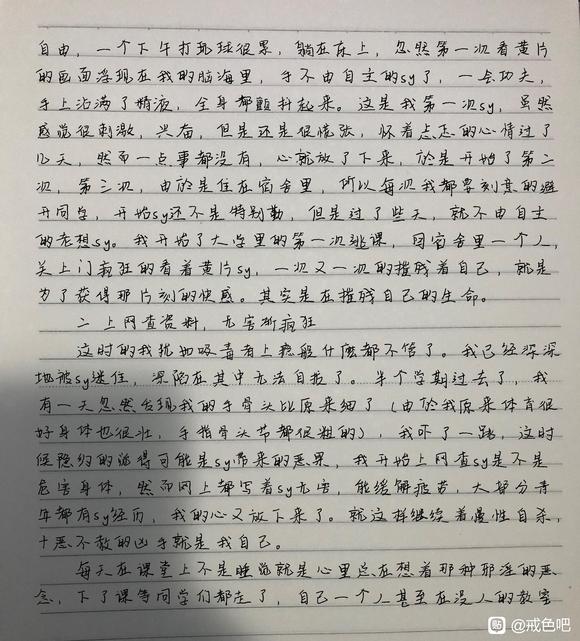 自由，一个下午打玩球很累，躺在床上，忽然第一次看黄片
的画面浮现在我的脑海里，手不由自主的sy了，一会功夫，
手上沾满了精液，全身都颤抖起来。这是我第一次sy，虽然
感觉很刺激，兴奋，但是还是很慌张，怀着忐忑的心情过了
几天，然而一点事都没有，心就放了下来，於是开始了第二
次，第三次，由於是住在宿舍里，所以每次我都要刻意的避
开同学，开始sy还不是特别勤，但是过了些天，就不由自主
的老想sy。我开始了大学里的第一次逃课，回宿舍里一个人，
关上门疯狂的看着黄片sy，一次又一次的摧残着自己，就是
为了获得那片刻的快感。其实是在摧残自己的生命。
二 上网查资料，无害断疯狂
这时的我犹如吸毒者上瘾般什麽都不管了。我已经深深
地被sy迷住，深陷在其中无法自拔了。半个学期过去了，我
有一天忽然发现我的手骨头比原来细了（由於我原来体育很
好身体也很壮，手指骨头节都很粗的），我吓了一跳，这时
候隐约的觉得可能是sy带来的恶果，我开始上网查sy是不是
危害身体，然而网上都写着sy无害，能缓解疲劳，大部分青
年都有sy经历，我的心又放下来了。就这样继续着慢性自杀，
十恶不赦的凶手就是我自己。
每天在课堂上不是睡觉就是心里总在想着那种邪淫的恶
念，下了课等同学们都走了，自己一个人甚至在没人的教室
贴 @戒色吧